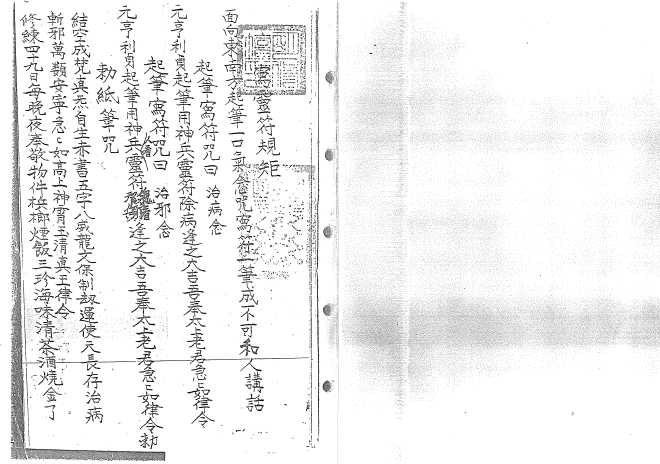 寫靈符規矩
面向東南方起筆一口氣念咒寫符一筆成不可和人講話
起筆寫符咒曰 治病念
元亨利貞起筆用神兵靈符除病逢之大吉吾奉太上老君急急如律令
起筆寫符咒曰 治邪念
元亨利貞起筆用神兵靈符逢之大吉吾奉太上老君急急如律令勅
勅紙筆咒
結空成梵真炁自生赤書五字八威龍文保制劫運使天長存治病
斬邪萬類安寧急急如高上神霄玉清真王律令
修練四十九日每晚夜奉敬物件梹榔煙飯三珍海味清茶酒燒金了